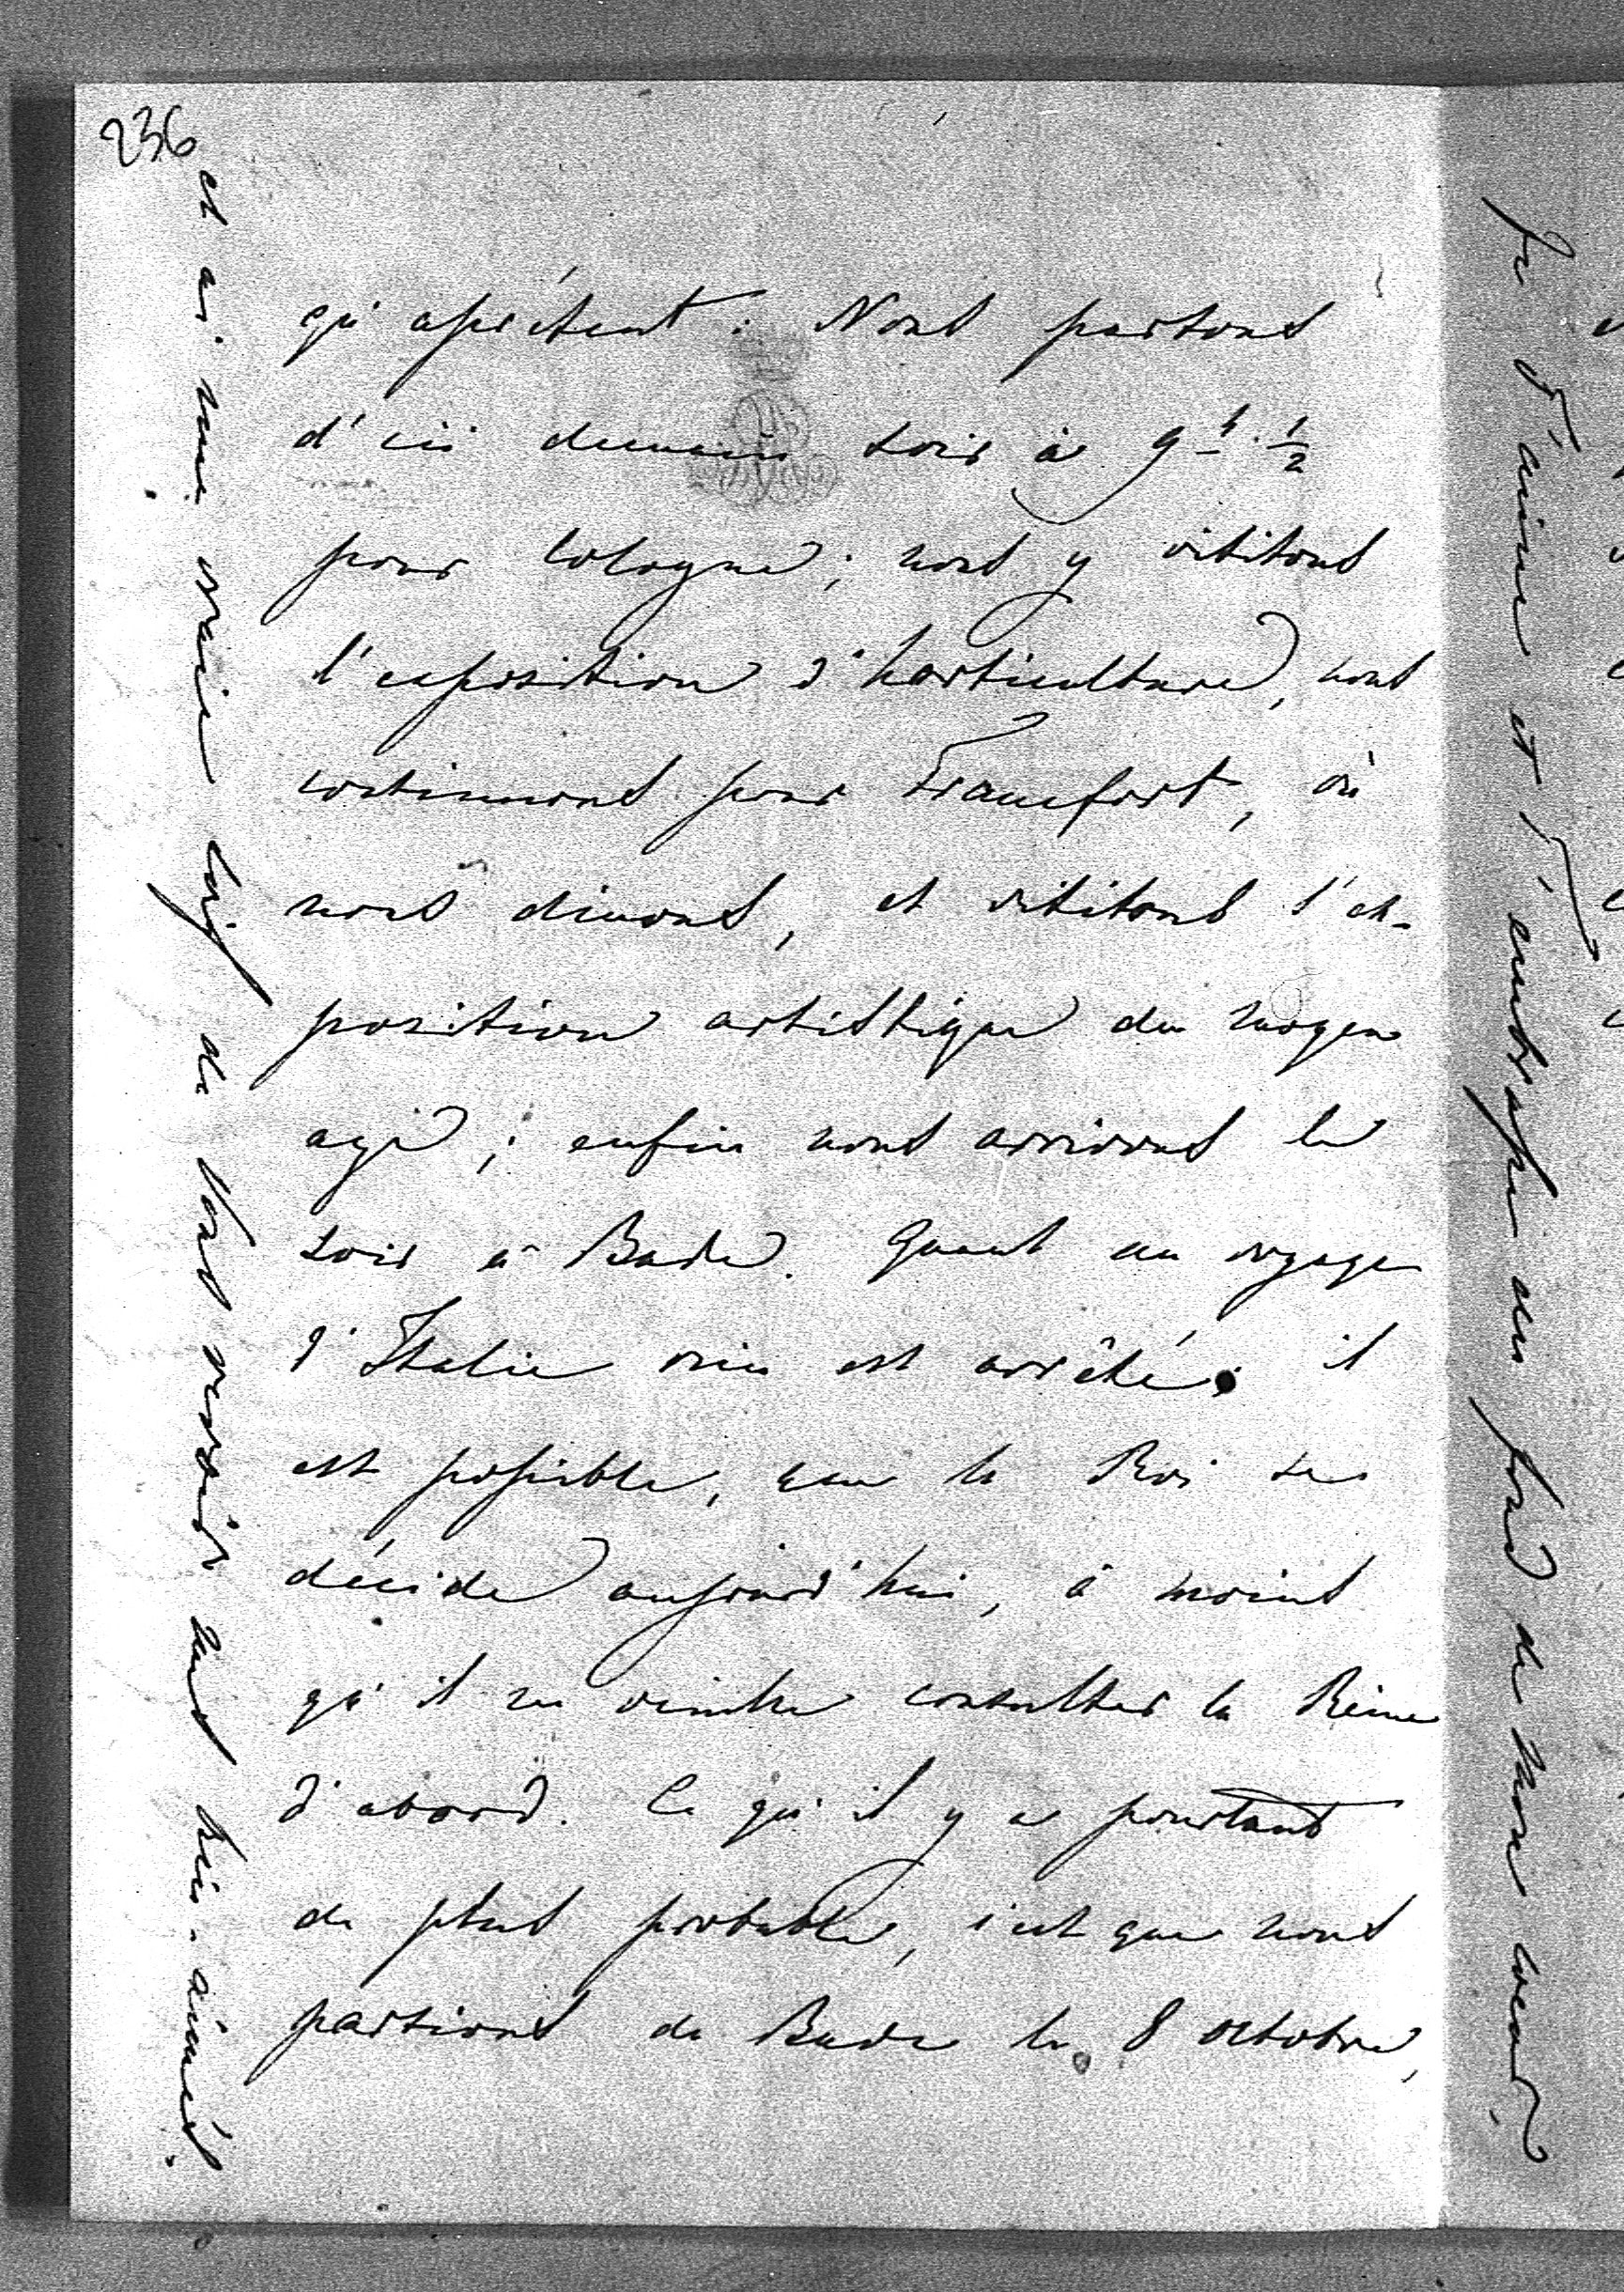 236
qu'à présent: Nous partons
d'ici demain soir à 9 h. 1/2
pour Cologne; nous y visitons
l'exposition d'horticulture, nous
continuons pour Francfort, où
nous dinons, et visitons l'ex-
position artistique du moyen
age; enfin nous arrivons le
soir à Bade. Quant au voyage
d'Italie rien est arrêté; il
est possible, que le Roi se
décide aujourd'hui, à moins
qu'il ne veuille consulter la Reine
d'abord. Ce qu'il y a pourtant
de plus probable, c'est que nous
partions de Bade le 8 octobre,
et ai une vraie soif de Vous revoir mes bien-aimés.
je T'aime et T'embrasse au fond de mon coeur